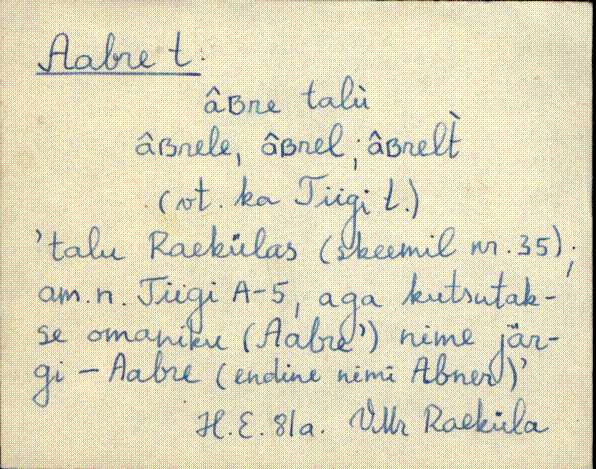 Aabre t.
âʙre talù
âʙrele, âʙrel; âʙrelt̀
(vt. ka Tiigi t.)
'talu Raekülas (skeemil nr. 35);
am. n. Tiigi A-5, aga kutsutak-
se omaniku (Aabre') nime jär-
gi - Aabre (endine nimi Abner)'
H. E. 81a. VMr Raeküla